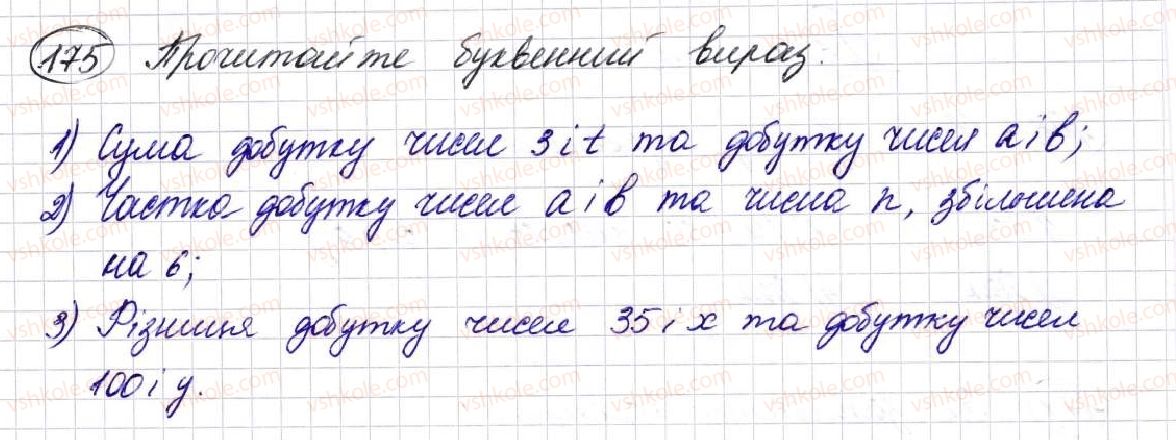 175 Прочитайте буквенний вираз.
1) Сума добутку чисел 3 і t та добутку чисел a і b;
2) Частка добутку чисел a і b та числа n, збільшена
на 6;
3) Різниця добутку чисел 35 і x та добутку чисел
100 і y.